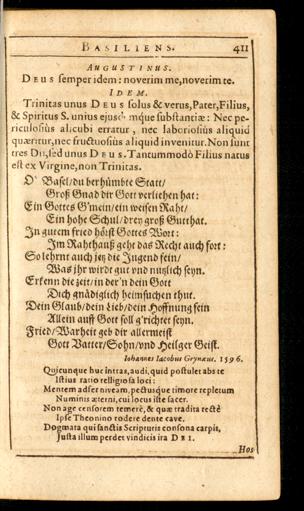 BASILIENS. 411
AUGUSTINUS.
DEUS semper idem: noverim me, noverim te.
IDEM.
Trinitas unus DEUS solus & verus, Pater, Filius,
& Spiritus S. unius ejusdémque substantiæ: Nec pe-
riculosiùs alicubi erratur, nec laboriosiùs aliquid
quæritur, nec fructuosiùs aliquid invenitur. Non sunt
tres Dii, sed unus DEUS. Tantummodò Filius natus
est ex Virgine, non Trinitas.
O Basel / du berhümbte Statt /
Groß Gnad dir Gott verlichen hat:
Ein Gottes G'mein / ein weisen Raht /
Ein hohe Schul / drey groß Gutthat.
In gutem fried hörst Gottes Wort:
Im Rahthauß geht das Recht auch fort:
So lehrnt auch jetz die Jugend fein /
Was ihr wirdt gut vnd nutzlich seyn.
Erkenn die zeit / in der'n dein Gott
Dich gnädiglich heimsuchen thut.
Dein Glaub / dein Lieb / dein Hoffnung sein
Allein auff Gott soll g'richtet seyn.
Fried / Warheit geb dir allermeist
Gott Vatter / Sohn / vnd Heilger Geist.
Iohannes Iacobus Grynæus. 1596.
Quicunque huc intras, audi, quid postulet abs te
Istius ratio relligiosa loci:
Mentem adfer niveam, pectusque timore repletum
Numinis æterni, cui locus iste sacer.
Non age censorem temerè, & quæ tradita rectè
Ipse Theonino rodere dente cave.
Dogmata qui sanctis Scripturis consona carpit,
Justa illum perdet vindicis ira DEI.
Hos